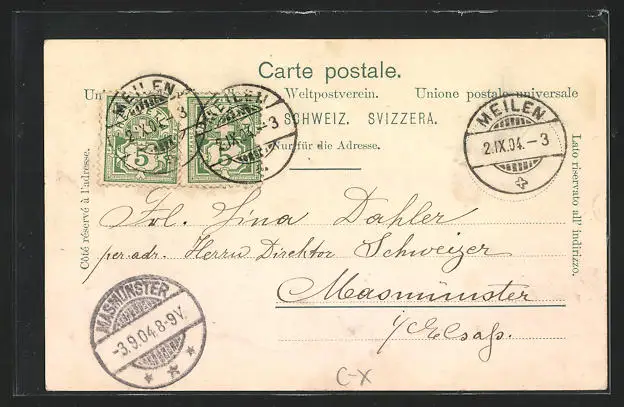 Carte postale.
Un Weltpostverein. Unione postale universale
SCHWEIZ. SVIZZERA.
Nur für die Adresse.
Côté réservé à l'adresse.
Lato riservato all' indirizzo.
MEILEN
2.IX.04.-3
MEILEN
2.IX.04.-3
5
MEILEN
2.IX.04.-3
Frl. Lina Dahler
per. adr. Herrn Direktor Schweizer
Masmünster
i/Elsaß.
MASMÜNSTER
-3.9.04.8-9V.
C-X